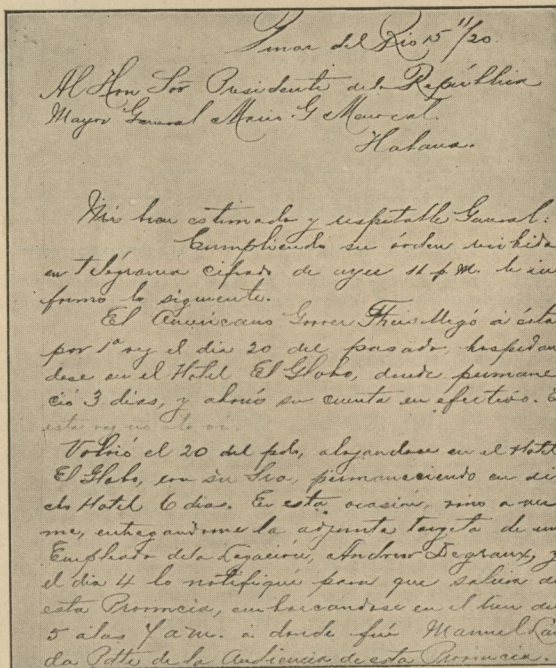 Pinar del Rio 15 11/20
Al Hon Sor Presidente de la República
Mayor General Mario G Menocal.
Habana.
Mi bien estimado y respetable General:
Cumpliendo su órden recibida
en Telégrama cifrado de ayer 11 p.m. le in
formo lo siguiente.
El Americano Gorrer Theis llegó á ésta
por 1ª vez el dia 20 del pasado, hospedan
dose en el Hotel El Globo, donde permane
ció 3 dias, y abonó su cuenta en efectivo. E
esta vez no lo vi.
Volvió el 20 del pdo, alojandose en el Hotel
El Globo, con su Sra, permaneciendo en di
cho Hotel 6 dias. En esta ocasión, vino a ver
me, entregandome la adjunta targeta de un
Empleado de la Legación, Andrew Degraux, y
el dia 4 lo notifiqué para que saliera de
esta Provincia, embarcandose en el tren de
5 á las 7 a.m. á donde fué Manuel Lan
da Pdte de la Audiencia de esta Provincia.